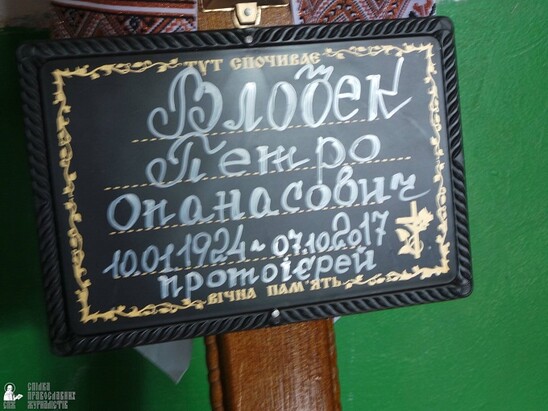 ТУТ СПОЧИВАЄ
Влодек
Петро
Опанасович
10.01.1924 ~ 07.10.2017
протоієрей
ВІЧНА ПАМ'ЯТЬ
СПІЛКА
ПРАВОСЛАВНИХ
ЖУРНАЛІСТІВ